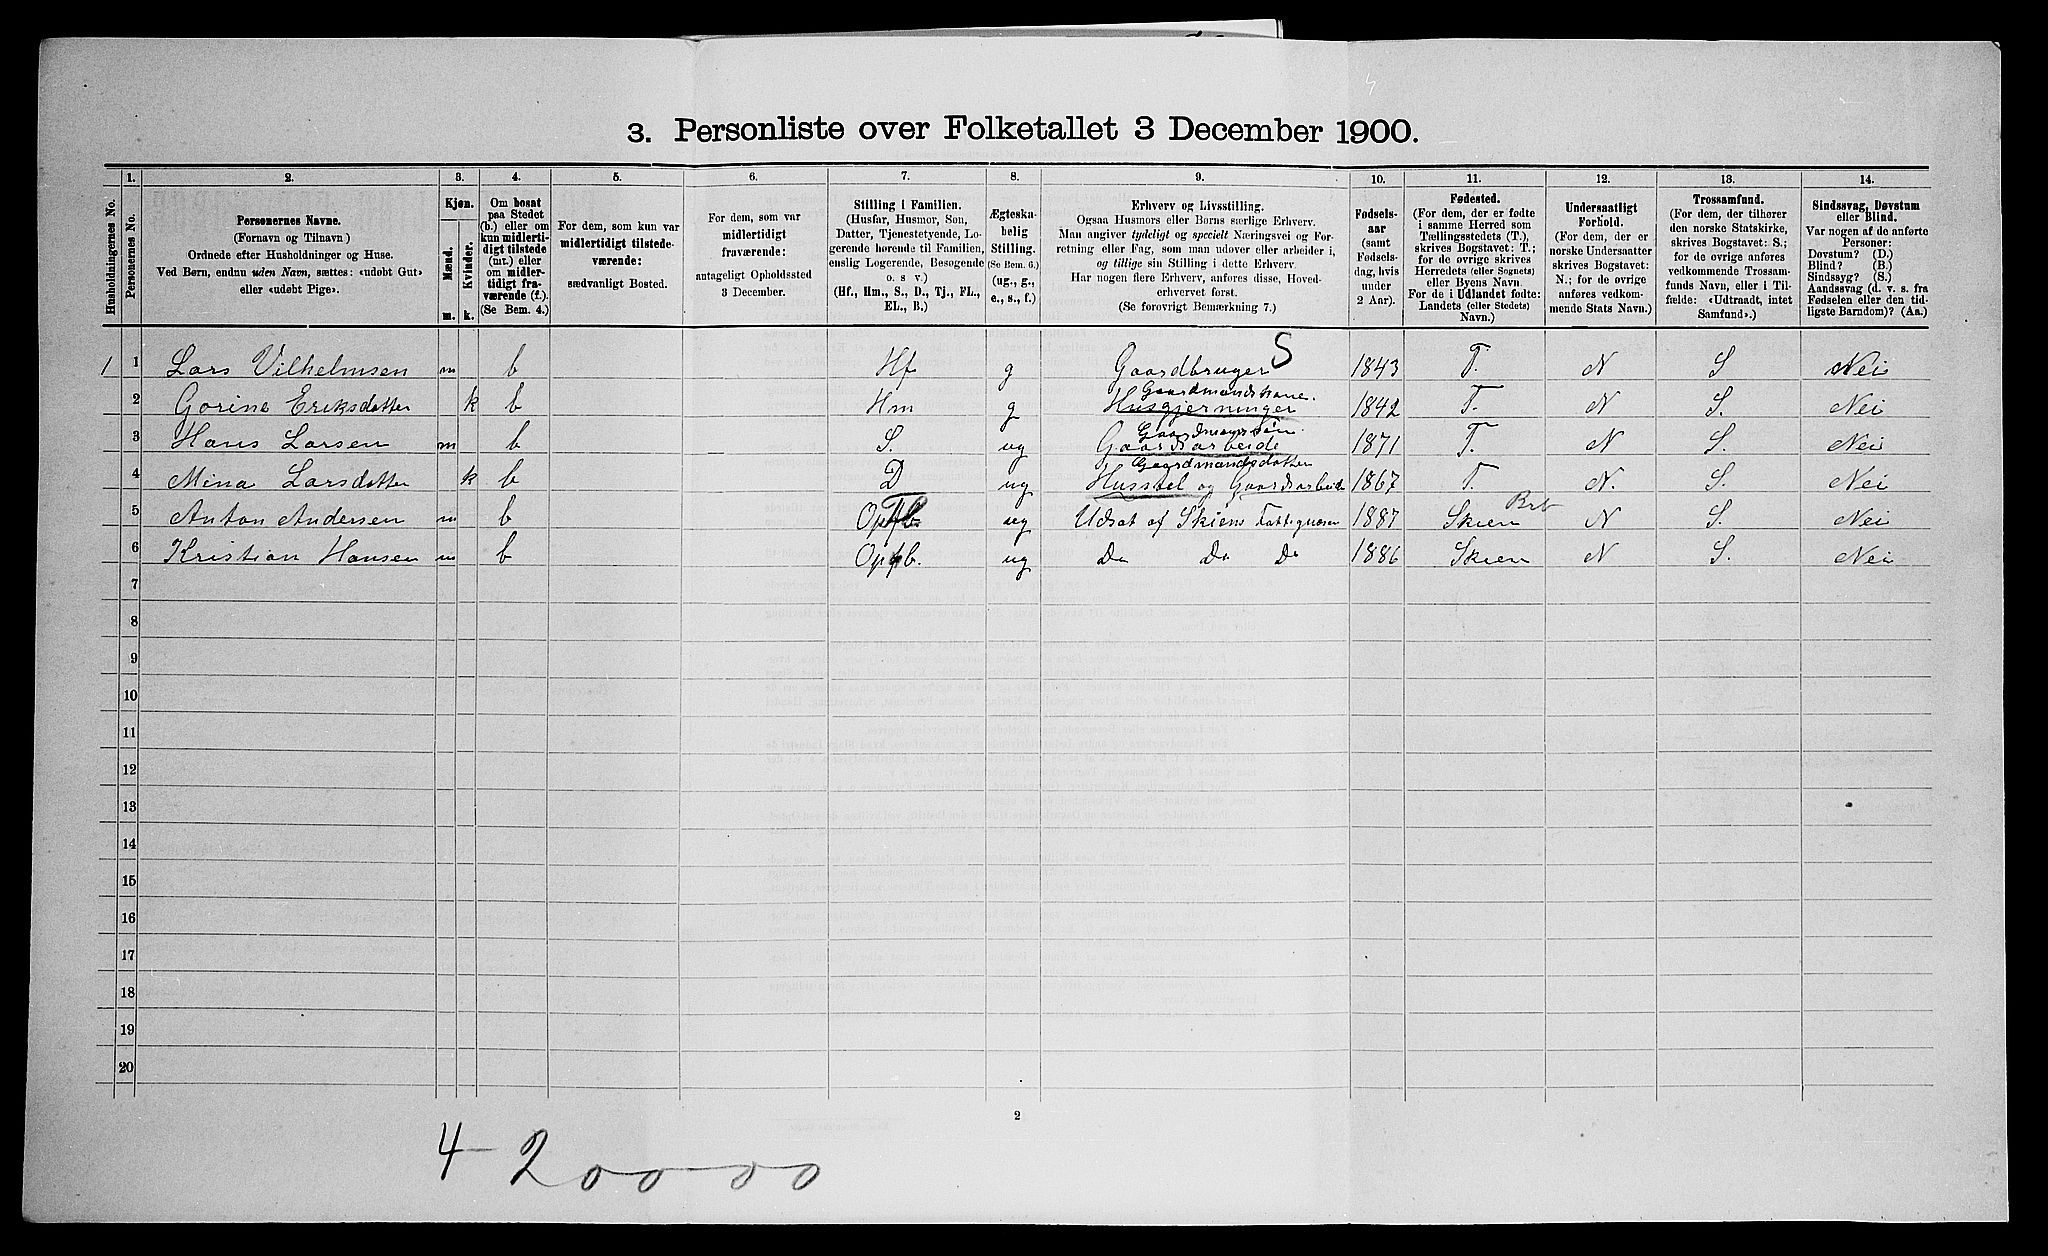 3. Personliste over Folketallet 3 December 1900.
Husholdningernes No.
1.
Personernes No.
2.
Personernes Navne.
(Fornavn og Tilnavn)
Ordnede efter Husholdninger og Huse.
Ved Børn, endnu uden Navn, sættes: «udøbt Gut»
eller «udøbt Pige».
3.
Kjøn.
Mænd.
m.
Kvinder.
k.
4.
Om bosat
paa Stedet
(b.) eller om
kun midlerti-
digt tilstede
(mt.) eller
om midler-
tidigt fra-
værende (f.).
(Se Bem. 4.)
5.
For dem, som kun var
midlertidigt tilstede-
værende:
sædvanligt Bosted.
6.
For dem, som var
midlertidigt
fraværende:
antageligt Opholdssted
3 December.
7.
Stilling i Familien.
(Husfar, Husmor, Søn,
Datter, Tjenestetyende, Lo-
gerende hørende til Familien,
enslig Logerende, Besøgende
o. s. v.)
(Hf., Hm., S., D., Tj., FL.,
EL., B.)
8.
Ægteska-
belig
Stilling.
(Se Bem. 6.)
(ug., g.,
e., s., f.)
9.
Erhverv og Livsstilling.
Ogsaa Husmors eller Børns særlige Erhverv.
Man angiver tydeligt og specielt Næringsvei og For-
retning eller Fag, som man udøver eller arbeider i,
og tillige sin Stilling i dette Erhverv.
Har nogen flere Erhverv, anføres disse, Hoved-
erhvervet først.
(Se forøvrigt Bemærkning 7.)
10.
Fødsels-
aar
(samt
Fødsels-
dag, hvis
under
2 Aar).
11.
Fødested.
(For dem, der er fødte
i samme Herred som
Tællingsstedets (T.),
skrives Bogstavet: T.;
for de øvrige skrives
Herredets (eller Sognets)
eller Byens Navn.
For de i Udlandet fødte:
Landets (eller Stedets)
Navn.)
12.
Undersaatligt
Forhold.
(For de, der er
norske Undersaatter
skrives Bogstavet:
N.; for de øvrige
anføres vedkom-
mende Stats Navn.)
13.
Trossamfund.
(For dem, der tilhører
den norske Statskirke,
skrives Bogstavet: S.;
for de øvrige anføres
vedkommende Trossam-
funds Navn, eller i Til-
fælde: «Udtraadt, intet
Samfund».)
14.
Sindssvag, Døvstum
eller Blind.
Var nogen af de anførte
Personer:
Døvstum? (D.)
Blind? (B.)
Sindssyg? (S.)
Aandssvag (d. v. s. fra
Fødselen eller den tid-
ligste Barndom)? (Aa.)
1 1 Lars Vilhelmsen m b Hf g Gaardbruger S 1843 T. N S Nei
Gaardmandskone.
2 Gorine Eriksdatter k b Hm g Husgjerninger 1842 T. N S. Nei
Gaardmandssøn.
3 Hans Larsen m b S. ug Gaardsarbeide 1871 T. N S. Nei
Gaardmandsdatter
4 Mina Larsdatter k b D ug Husstel og Gaardsarbeide 1867 T. N. S. Nei
5 Anton Andersen m b ug Udsat af Skiens Fattigvæsen 1887 Skien N S. Nei
6 Kristian Hansen m b ug Do Do Do 1886 Skien N S. Nei
7
8
9
10
11
12
13
14
15
16
17
18
19
20
2
4 - 2 0 0 - 0 0